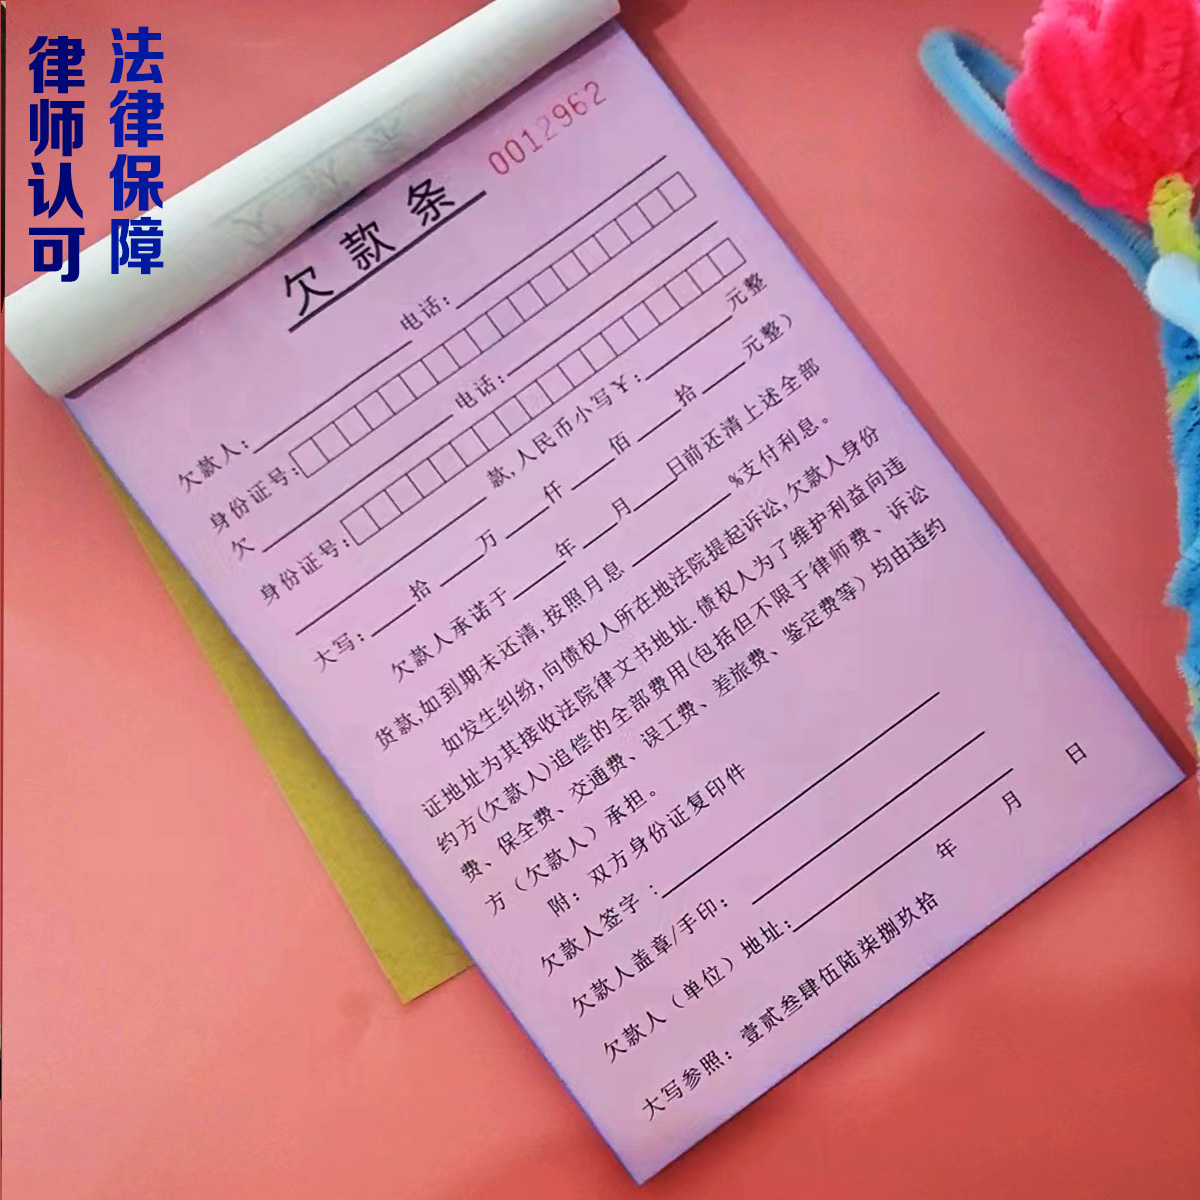 法律保障
律师认可
0012962
欠款条
欠款人: 电话:
身份证号:
欠 电话:
身份证号:
款,人民币小写¥: 元整
大写: 拾 万 仟 佰 拾 元整)
欠款人承诺于 年 月 日前还清上述全部
货款,如到期未还清,按照月息 %支付利息。
如发生纠纷,向债权人所在地法院提起诉讼,欠款人身份
证地址为其接收法院律文书地址.债权人为了维护利益向违
约方(欠款人)追偿的全部费用(包括但不限于律师费、诉讼
费、保全费、交通费、误工费、差旅费、鉴定费等)均由违约
方(欠款人)承担。
附: 双方身份证复印件
欠款人签字:
欠款人盖章/手印:
欠款人(单位)地址:
年 月 日
大写参照: 壹贰叁肆伍陆柒捌玖拾